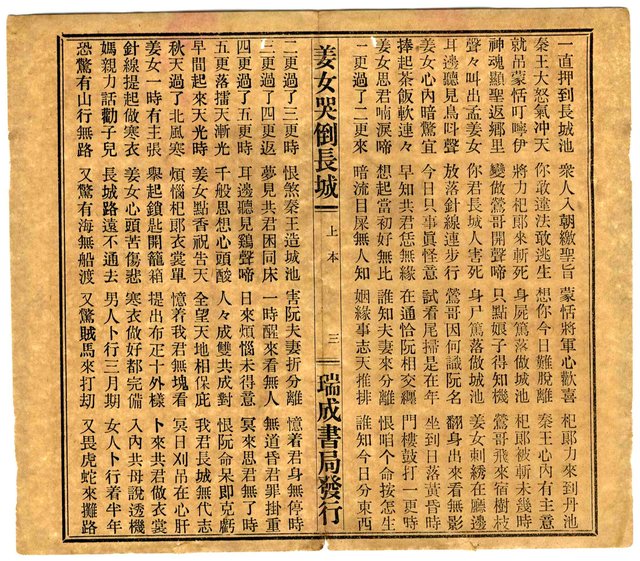 一直押到長城池 眾人入朝繳聖旨 蒙恬將軍心歡喜 杞郎力來到丹池
秦王大怒氣冲天 你敢違法敢逃生 想你今日難脫離 秦王心內有主意
就吊蒙恬叮嚀伊 將力杞郎來斬死 身屍罵落做城池 杞郎被斬未幾時
神魂顯聖返鄉里 變做鶯哥開聲啼 只點娘子得知機 鶯哥飛來宿樹枝
聲々叫出孟姜女 你君長城人害死 身尸罵落做城池 姜女刺綉在廳邊
耳邊聽見鳥叫聲 放落針線連步行 鶯哥因何識阮名 翻身出來看無影
姜女心內暗驚宜 今日只事眞怪意 試看尾掃是在年 坐到日落黃昏時
捧起茶飯軟連々 早知共君恁無緣 在通恰阮相交纏 門樓鼓打一更時
姜女思君喃淚啼 想起當初好無比 誰知夫妻來分離 恨咱个命按怎生
一更過了二更來 暗流目屎無人知 姻緣事志天推排 誰知今日分東西
姜女哭倒長城 上本 三 瑞成書局發行
二更過了三更時 恨煞秦王造城池 害阮夫妻折分離 憶着君身無停時
三更過了四更返 夢見共君困同床 一時醒來看無人 無道昏君罪掛重
四更過了五更時 耳邊聽見鷄聲啼 日來煩惱未得意 冥來思君無了時
五更落擂天漸光 千般思想心頭酸 人々成雙共成對 恨阮命呆即克虧
早間起來天光時 姜女點香祝告天 全望天地相保庇 我君長城無代志
秋天過了北風寒 煩惱杞郎衣裳單 憶着我君無塊看 冥日刈吊在心肝
姜女一時有主張 舉起鎖匙開籠箱 提出布疋十外樣 卜來共君做衣裳
針線提起做寒衣 姜女心頭苦傷悲 寒衣做好都完備 入內共母說透機
媽親力話勸子兒 長城路遠不通去 男人卜行三月期 女人卜行着半年
恐驚有山行無路 又驚有海無船渡 又驚賊馬來打刼 又畏虎蛇來攤路